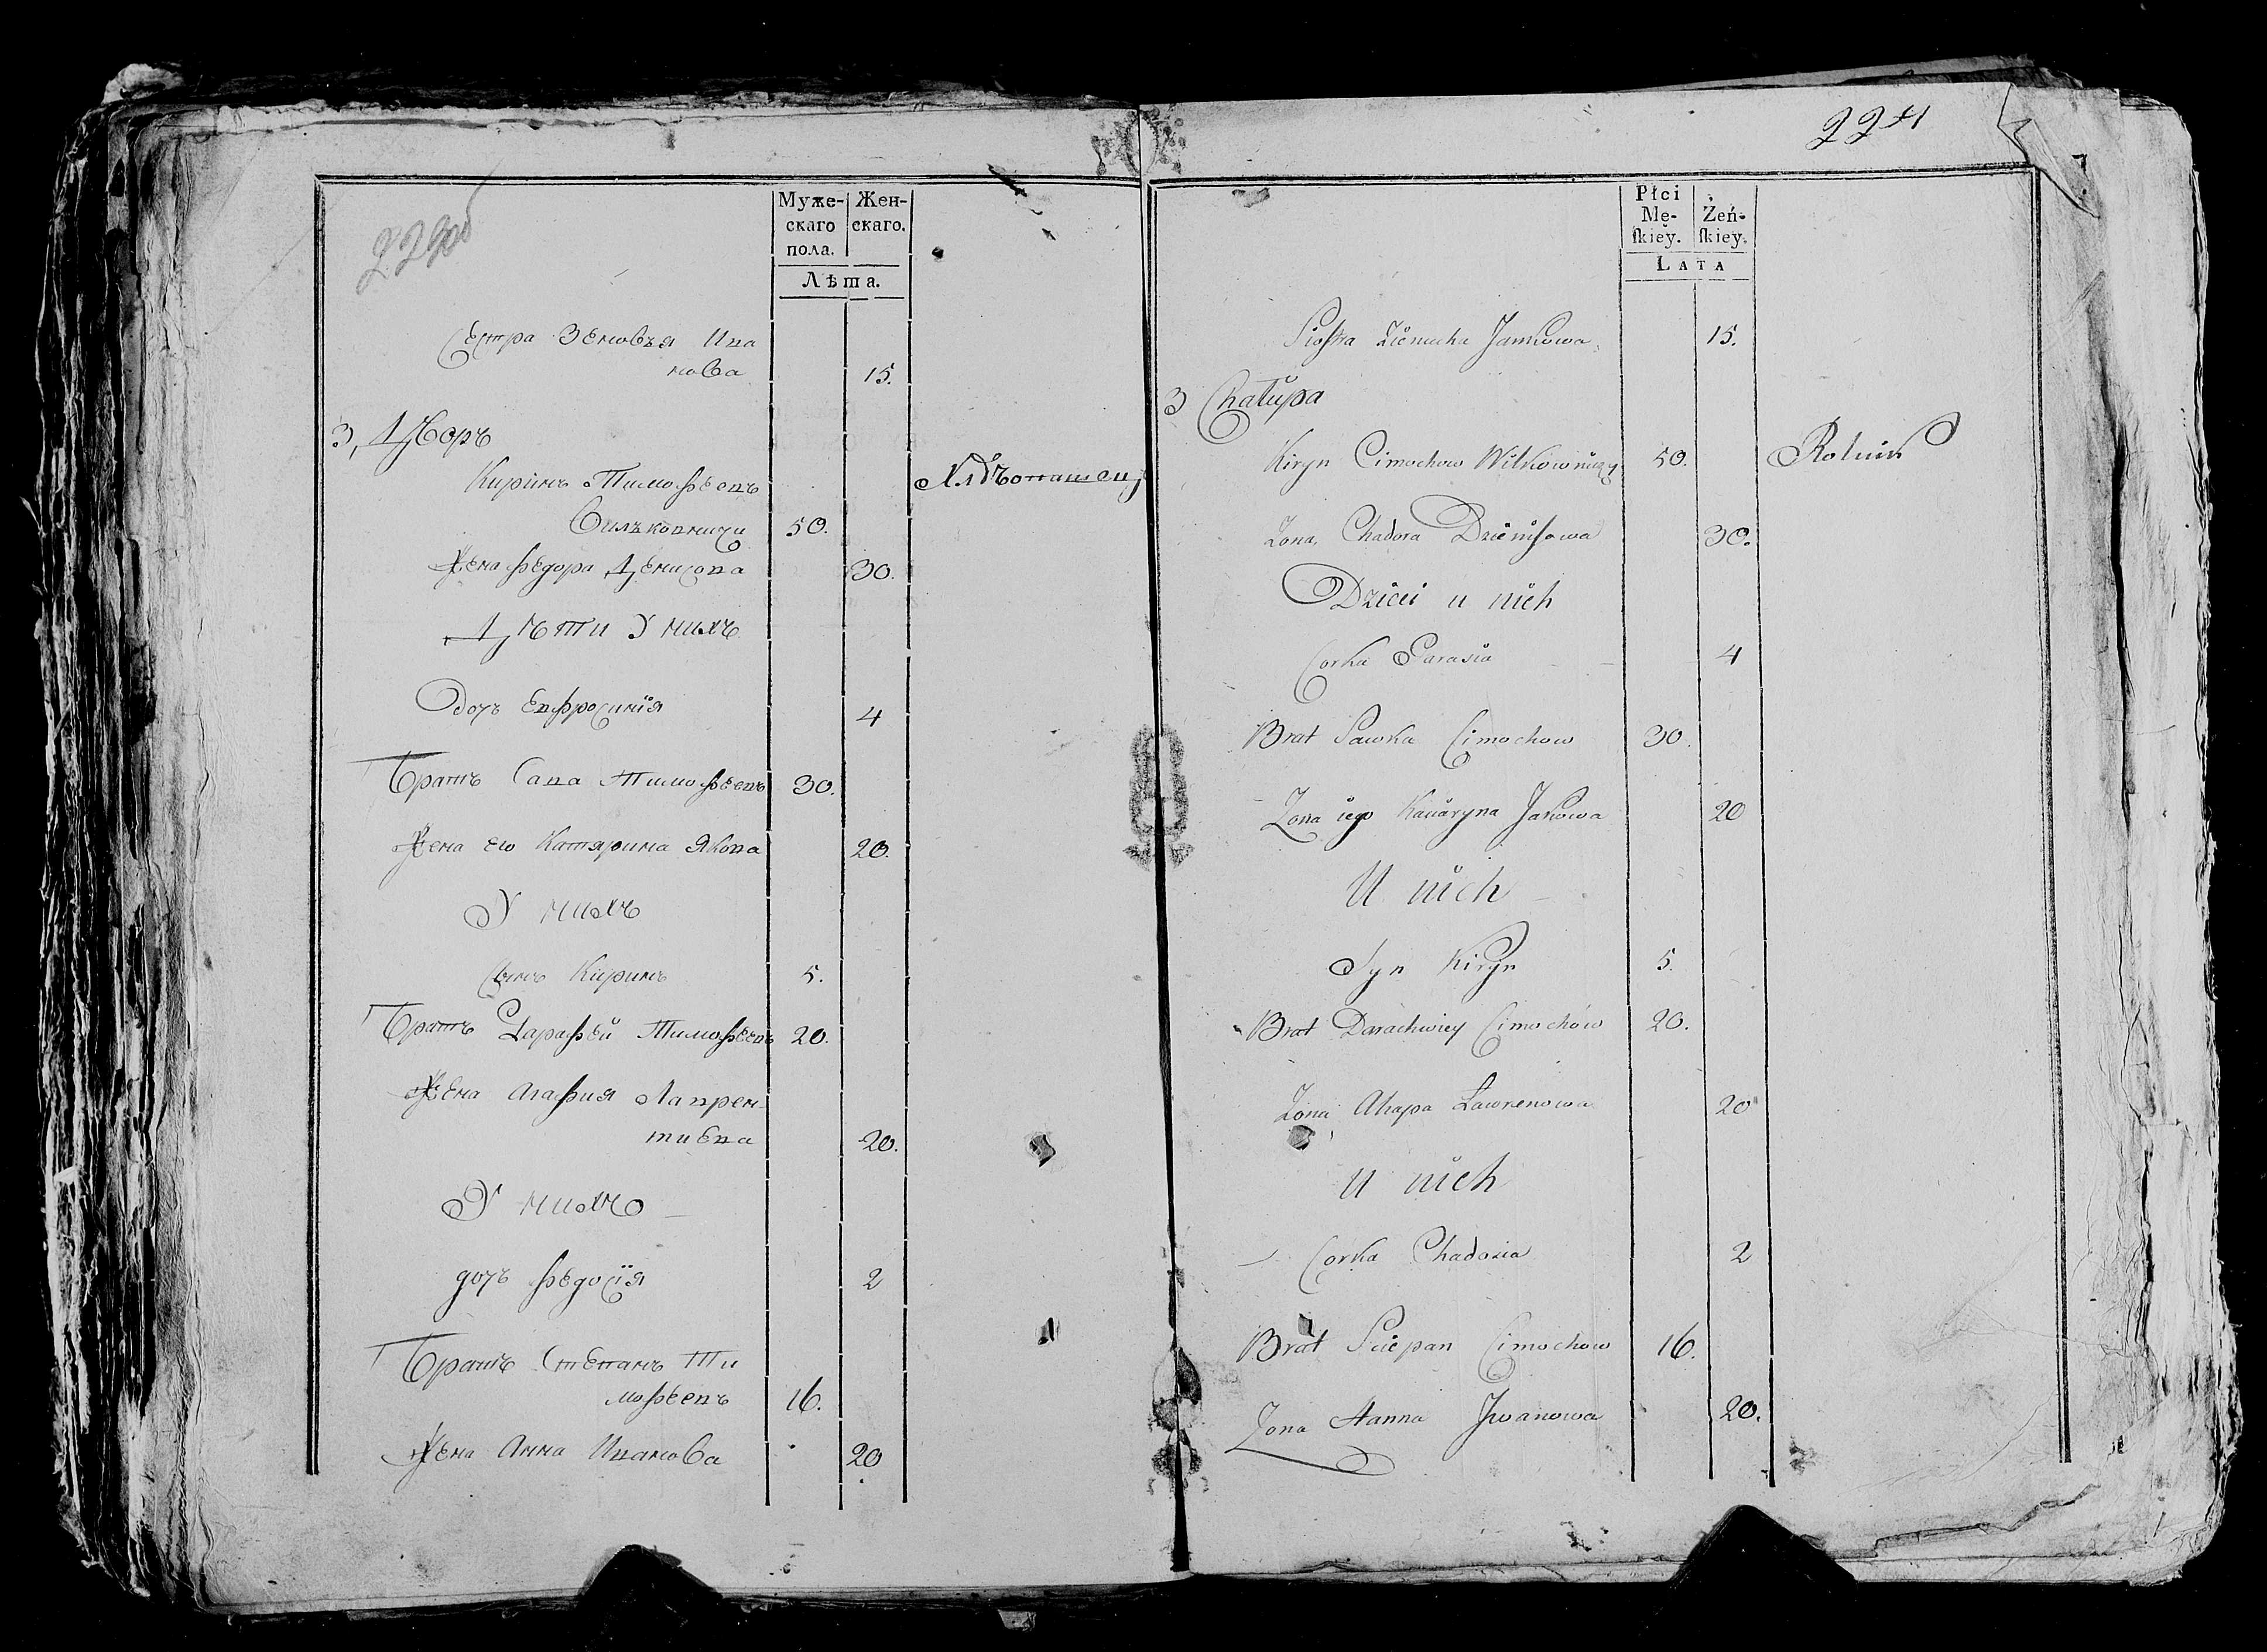 229об
Муже-
скаго
пола.
Жен-
скаго.
Лѣта.
Сестра Зеновъя Ива
нова 15.
3, Дворъ
Киринъ Тимофеевъ
Вильковничи 50.
Хлѣбопашец
Жена Федора Денисова 30.
Дѣти У нихъ
дочь Евфросинія 4
Братъ Сава Тимофеевъ 30.
Жена его Катярина Якова 20.
У нихъ
Сынъ Киринъ 5.
Братъ Дарафей Тимофеевъ 20.
Жена Агафия Лаврен-
тиева 20.
У нихъ
дочь Федосія 2
Братъ Степанъ Ти
мофеевъ 16.
Жена Анна Иванова 20
Płci
Mę-
ſkiey.
Żeń-
ſkiey.
LATA
Siostra Zienucha Jankowa 15.
3 Chałupa
Kiryn Cimochow Wilkowniczy 50. Rolnik
Zona Chadora Dzienisowa 30.
Dzieci u nich
Corka Parasia 4
Brat Sawka Cimochow 30.
Zona iego Kaciaryna Jakowa 20
U nich
Syn Kiryn 5.
Brat Darachwiey Cimochow 20.
Zona Ahapa Lawrenowa 20
U nich
Corka Chadosia 2
Brat Sciepan Cimochow 16.
Zona Hanna Jwanowa 20.